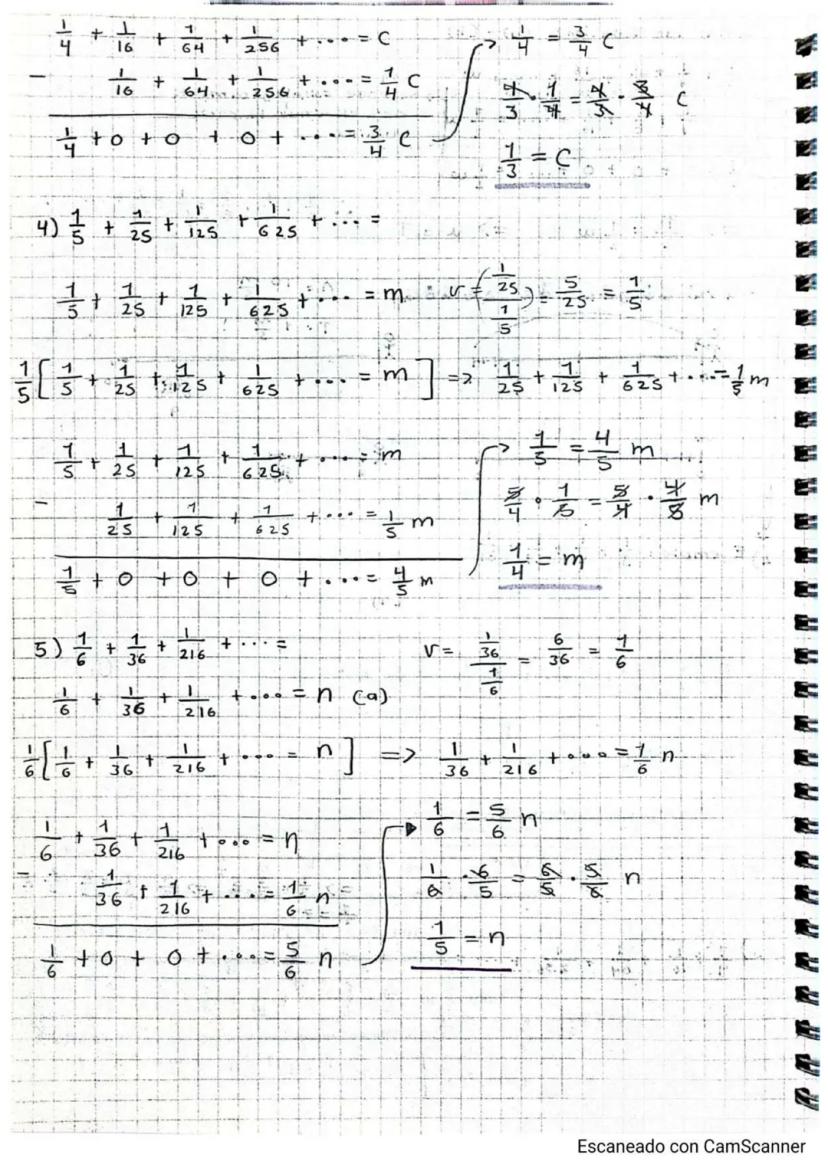 1/4 + 1/16 + 1/64 + 1/256 + ... = C
- 1/16 + 1/64 + 1/256 + ... = 1/4 C
1/4 + 0 + 0 + 0 + ... = 3/4 C
→ 1/4 = 3/4 C
4/3 · 1/4 = 4/3 · 3/4 C
1/3 = C
4) 1/5 + 1/25 + 1/125 + 1/625 + ... =
1/5 + 1/25 + 1/125 + 1/625 + ... = m
r = ((1/25)/(1/5)) = 5/25 = 1/5
1/5 [ 1/5 + 1/25 + 1/125 + 1/625 + ... = m ] => 1/25 + 1/125 + 1/625 + ... = 1/5 m
1/5 + 1/25 + 1/125 + 1/625 + ... = m
- 1/25 + 1/125 + 1/625 + ... = 1/5 m
1/5 + 0 + 0 + 0 + ... = 4/5 m
→ 1/5 = 4/5 m
5/4 · 1/5 = 5/4 · 4/5 m
1/4 = m
5) 1/6 + 1/36 + 1/216 + ... =
r = (1/36)/(1/6) = 6/36 = 1/6
1/6 + 1/36 + 1/216 + ... = n (a)
1/6 [ 1/6 + 1/36 + 1/216 + ... = n ] => 1/36 + 1/216 + ... = 1/6 n
1/6 + 1/36 + 1/216 + ... = n
- 1/36 + 1/216 + ... = 1/6 n
1/6 + 0 + 0 + ... = 5/6 n
→ 1/6 = 5/6 n
1/6 · 6/5 = 6/5 · 5/6 n
1/5 = n
Escaneado con CamScanner